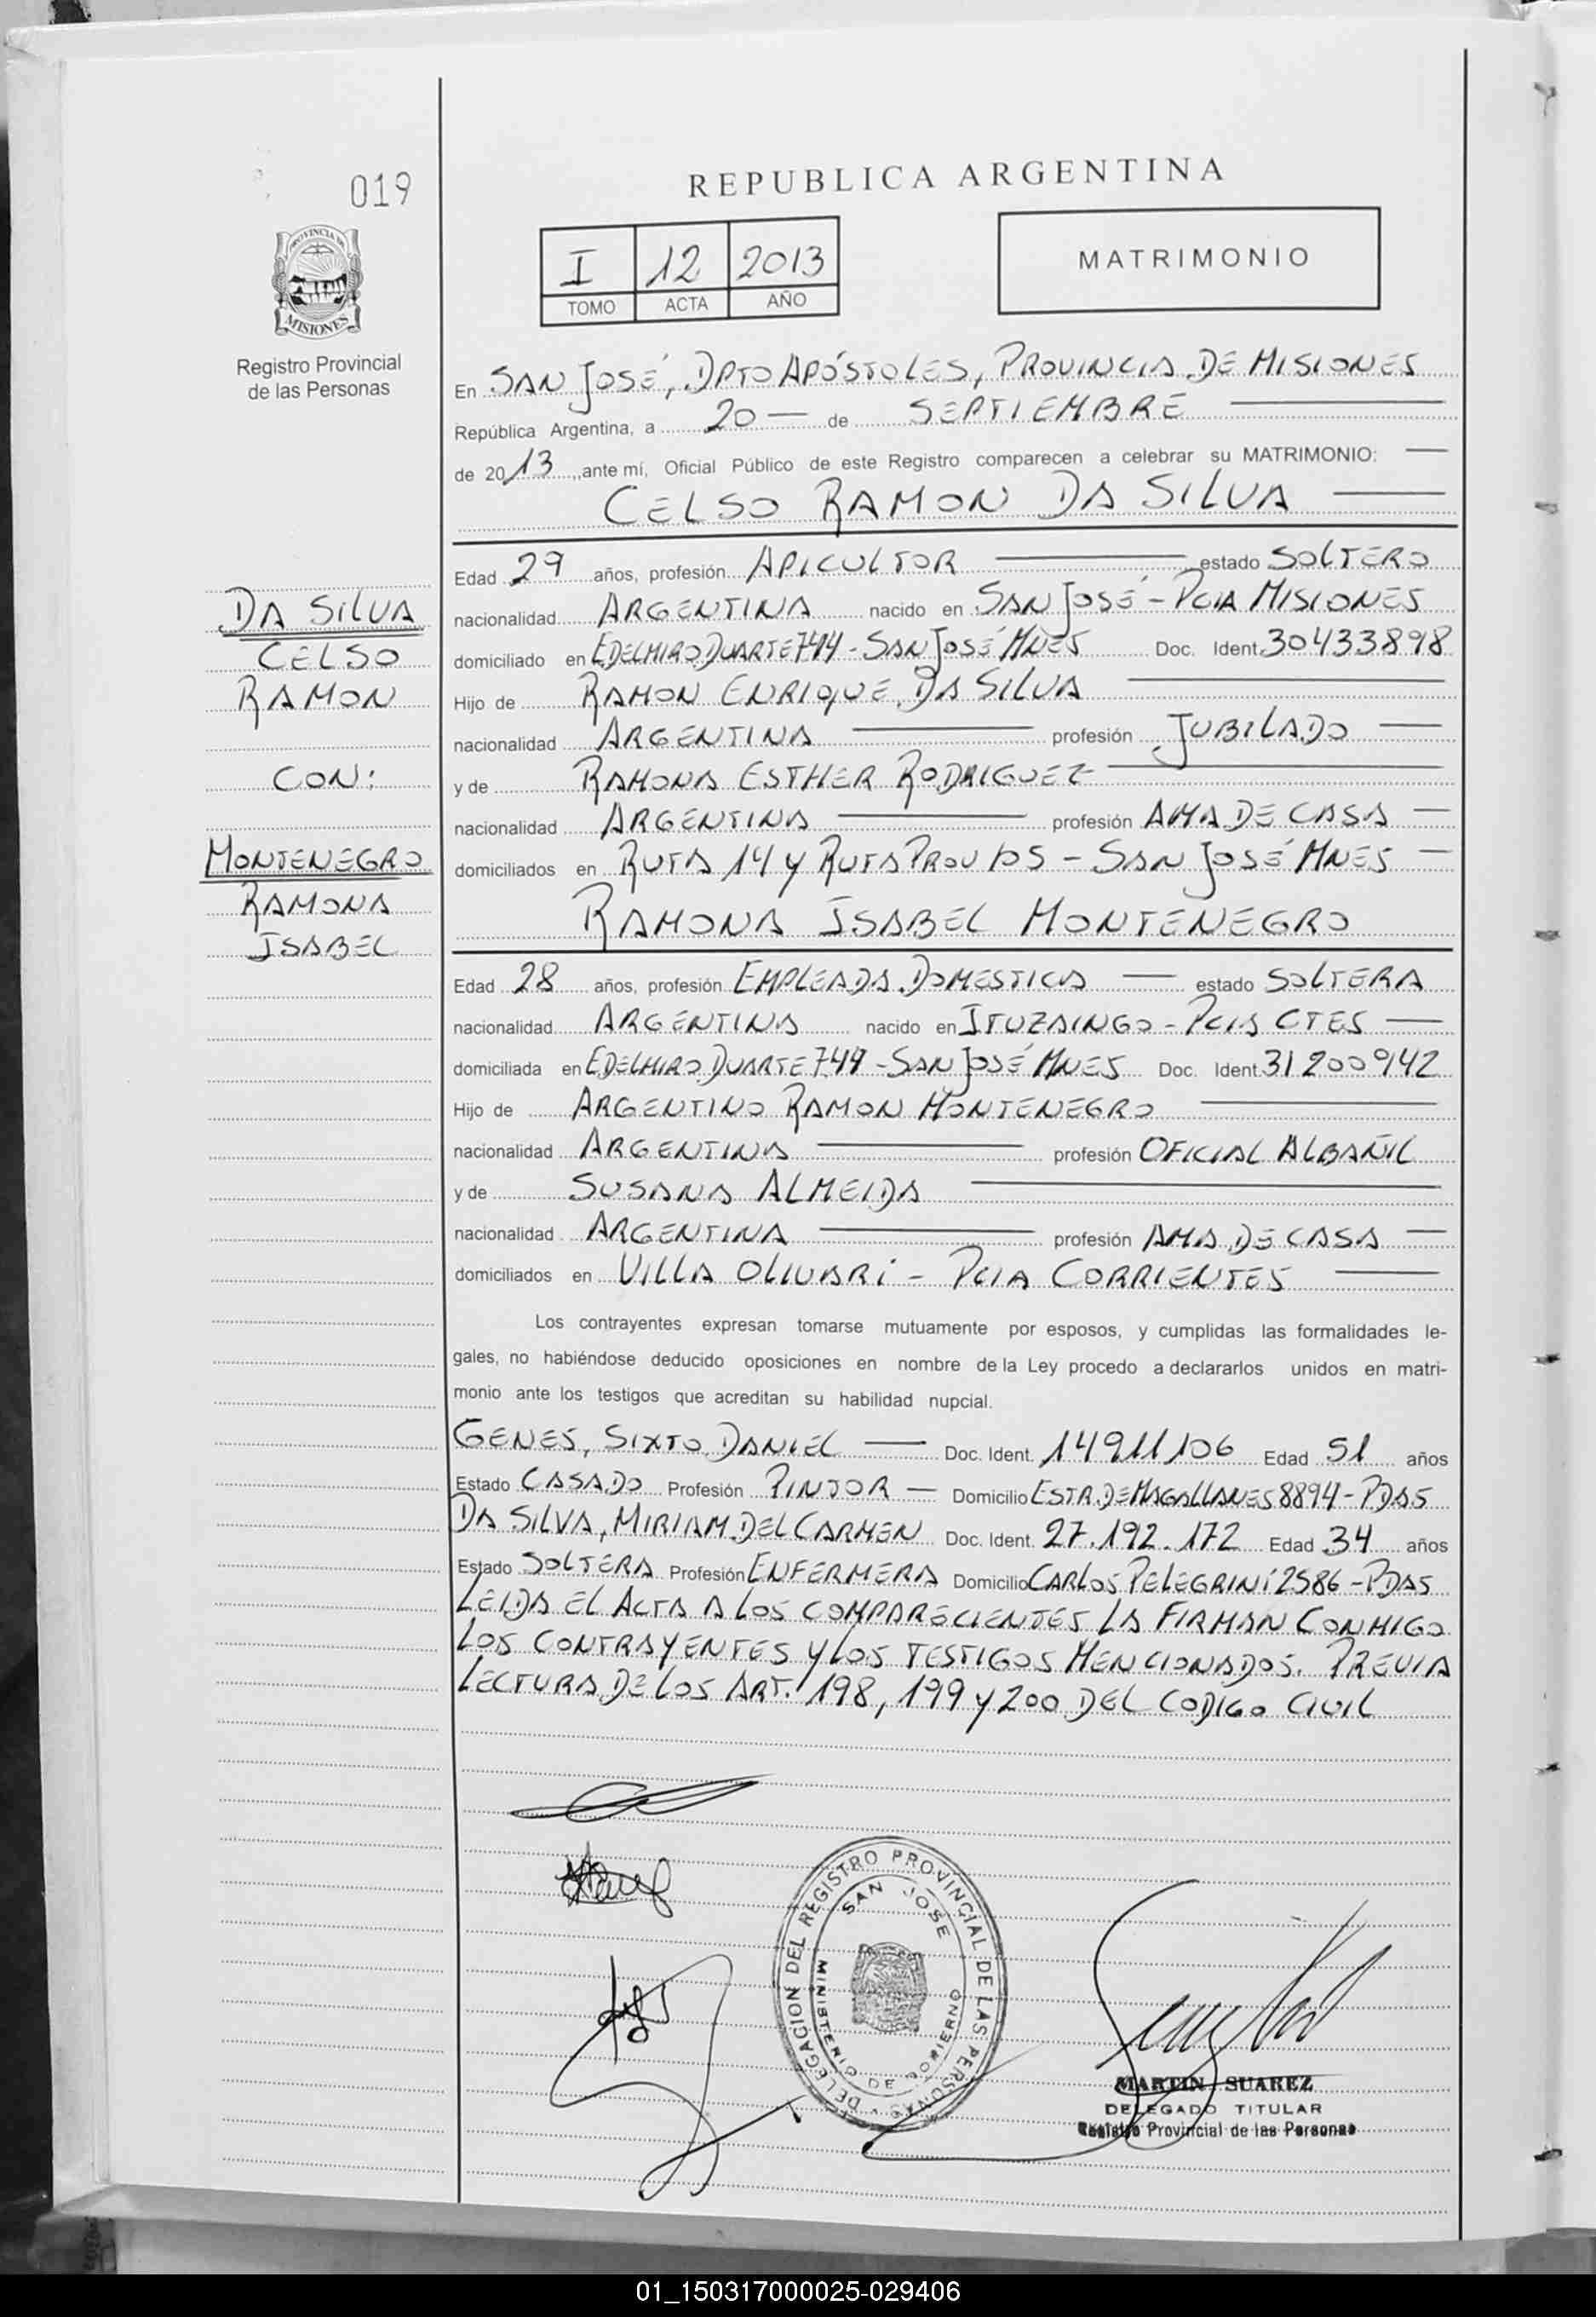 019
PROVINCIA DE
MISIONES
Registro Provincial
de las Personas
REPUBLICA ARGENTINA
I 12 2013
TOMO ACTA AÑO
MATRIMONIO
En SAN JOSÉ, DPTO APÓSTOLES, PROVINCIA DE MISIONES
República Argentina, a 20 — de SEPTIEMBRE —
de 2013, ante mí, Oficial Público de este Registro comparecen a celebrar su MATRIMONIO: —
CELSO RAMON DA SILVA —
Edad 29 años, profesión APICULTOR — estado SOLTERO
nacionalidad ARGENTINA nacido en SAN JOSÉ - PCIA MISIONES
domiciliado en EDELMIRO DUARTE 744 - SAN JOSÉ MNES Doc. Ident. 30433898
Hijo de RAMON ENRIQUE DA SILVA —
nacionalidad ARGENTINA — profesión JUBILADO —
y de RAMONA ESTHER RODRIGUEZ —
nacionalidad ARGENTINA — profesión AMA DE CASA —
domiciliados en RUTA 14 y RUTA PROV 105 - SAN JOSÉ MNES —
RAMONA ISABEL MONTENEGRO
Edad 28 años, profesión EMPLEADA DOMESTICA — estado SOLTERA
nacionalidad ARGENTINA nacido en ITUZAINGO - PCIA CTES —
domiciliada en EDELMIRO DUARTE 744 - SAN JOSÉ MNES Doc. Ident. 31200942
Hijo de ARGENTINO RAMON MONTENEGRO —
nacionalidad ARGENTINA — profesión OFICIAL ALBAÑIL
y de SUSANA ALMEIDA —
nacionalidad ARGENTINA — profesión AMA DE CASA —
domiciliados en VILLA OLIVARI - PCIA CORRIENTES —
Los contrayentes expresan tomarse mutuamente por esposos, y cumplidas las formalidades le-
gales, no habiéndose deducido oposiciones en nombre de la Ley procedo a declararlos unidos en matri-
monio ante los testigos que acreditan su habilidad nupcial.
GENES, SIXTO DANIEL — Doc. Ident. 14911106 Edad 51 años
Estado CASADO Profesión PINTOR — Domicilio ESTR. DE MAGALLANES 8894 - PDAS
DA SILVA, MIRIAM DEL CARMEN Doc. Ident. 27.192.172 Edad 34 años
Estado SOLTERA Profesión ENFERMERA Domicilio CARLOS PELEGRINI 2586 - PDAS
LEIDA EL ACTA A LOS COMPARECIENTES LA FIRMAN CONMIGO
LOS CONTRAYENTES Y LOS TESTIGOS MENCIONADOS. PREVIA
LECTURA DE LOS ART. 198, 199 y 200 DEL CODIGO CIVIL
DA SILVA
CELSO
RAMON
CON:
MONTENEGRO
RAMONA
ISABEL
DELEGACION DEL REGISTRO PROVINCIAL DE LAS PERSONAS
SAN JOSE
MINISTERIO DE GOBIERNO
MARTIN SUAREZ
DELEGADO TITULAR
Registro Provincial de las Personas
01_150317000025-029406